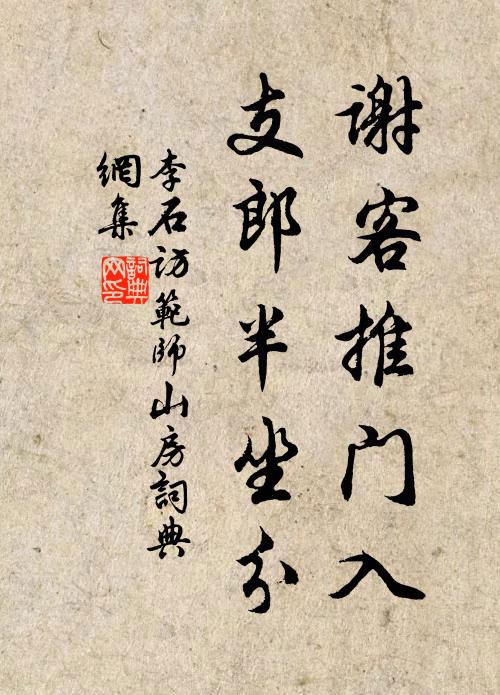 谢客推门入
支郎半坐分
李石访範師山房詞典
網集
詞典网印